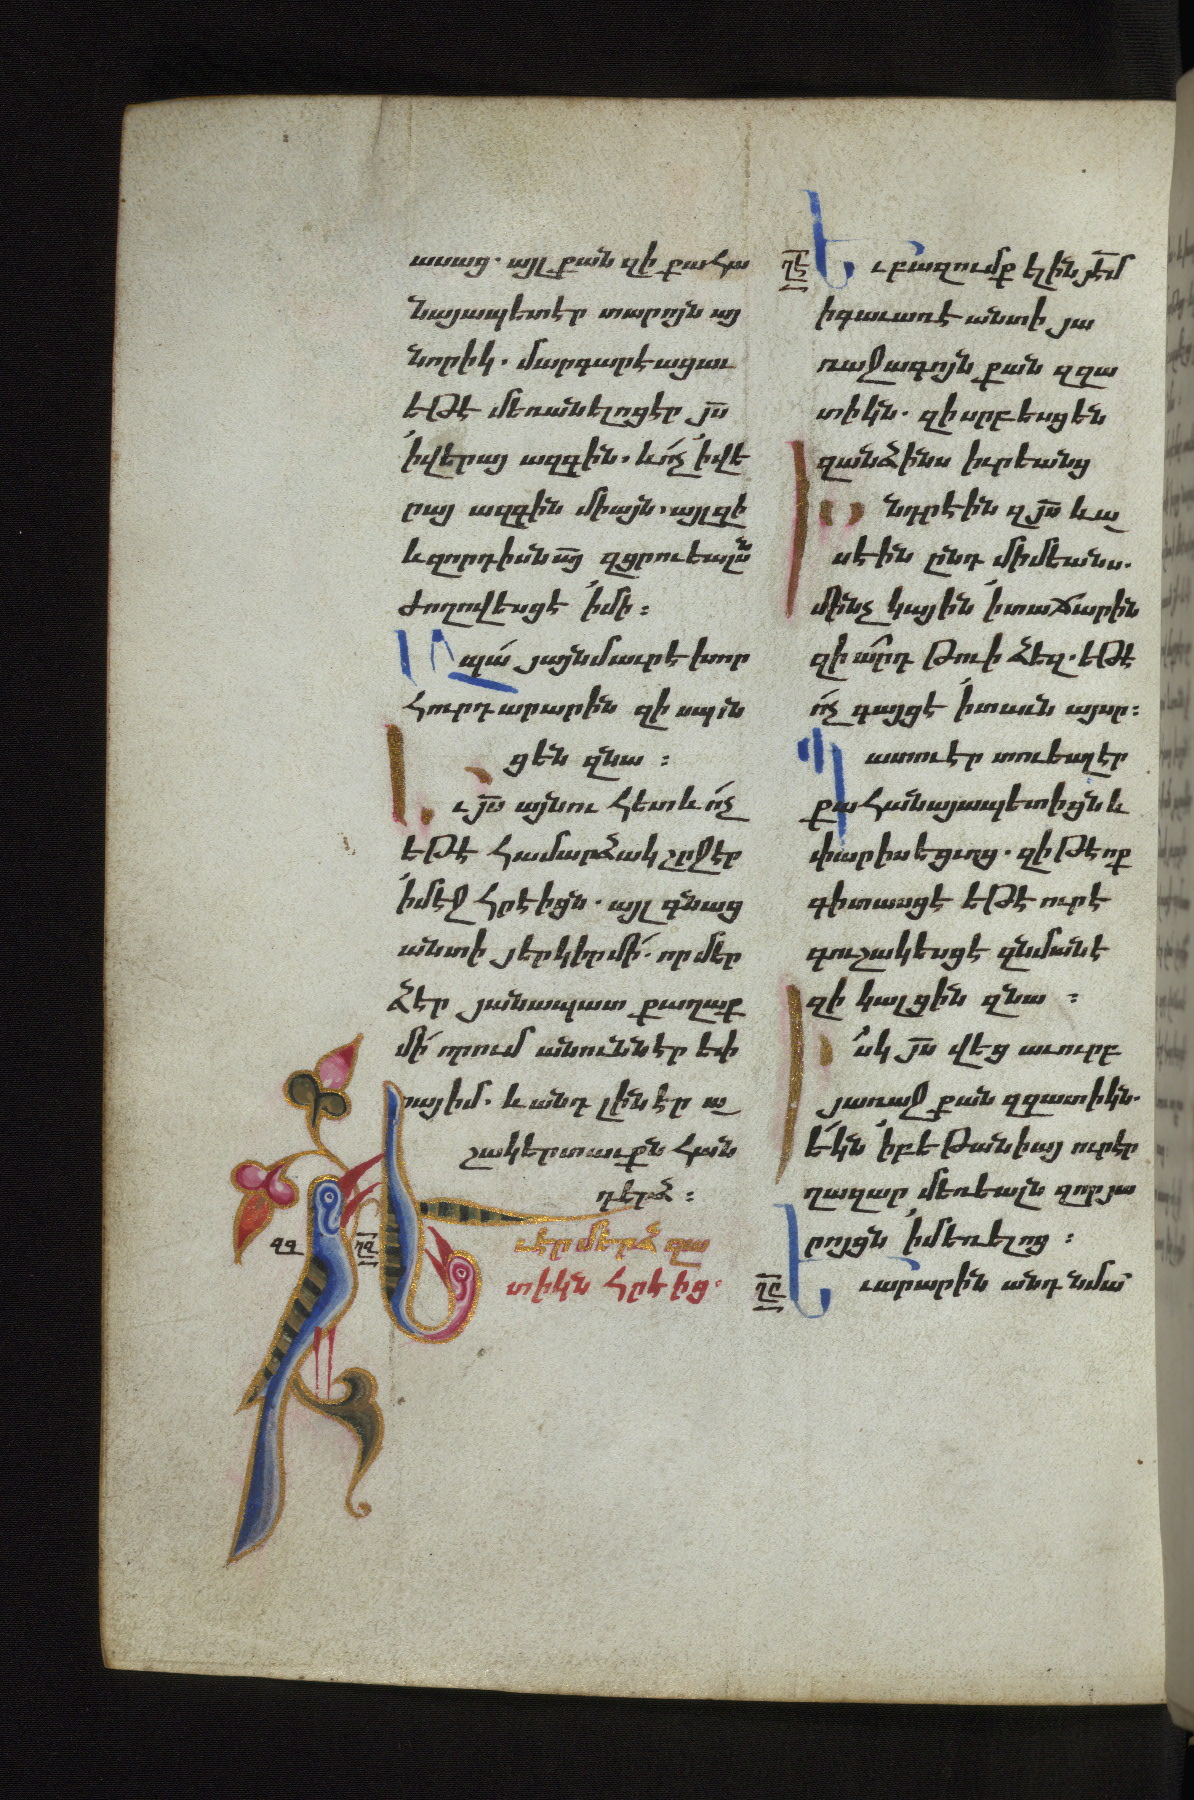 ասաց. այլ քան զի քահա
նայապետ էր տարոյն այ
նորիկ. մարգարէացաւ
եթէ մեռանելոց էր յս
ի վերայ ազգին. և ոչ ի վե
րայ ազգին միայն. այլ զի
և զորդիսն այ զցրուեալսն
ժողովեսցէ ի մի :
Ապա յայնմաւրէ խոր
հուրդ արարին զի սպան
ցեն զնա :
Եւ յս այնու հետև ոչ
եթէ համարձակ շրջէր
ի մէջ հրէիցն. այլ գնաց
անտի յերկիր մի. որ մեր
ձէր յանապատ քաղաք
մի որում անունն էր եփ
րայիմ. և անդ լինէր ա
շակերտաւքն հան
դերձ :
զգ
ղզ
Եւ էր մերձ զա
տիկն հրէից.
ղէ
Եւ բազումք ելին յէմ
ի գաւառէ անտի յա
ռաջագոյն քան զզա
տիկն. զի սրբեսցեն
զանձինս իւրեանց
Խնդրէին զյս և ա
սէին ընդ միմեանս.
մինչ կային ի տաճարին
զի արդ թուի ձեզ. եթէ
ոչ գայցէ ի տաւն այսր :
Պատուէր տուեալ էր
քահանայապետիցն և
փարիսեցւոց. զի թէ ոք
գիտասցէ եթէ ուր է
գուշակեսցէ զնմանէ
զի կալցին զնա :
Իսկ յս վեց աւուրբ
յառաջ քան զզատիկն.
եկն ի բեթանիայ ուր էր
ղազար մեռեալն զոր յա
րոյցն ի մեռելոց :
ղը
Եւ արարին անդ նմա